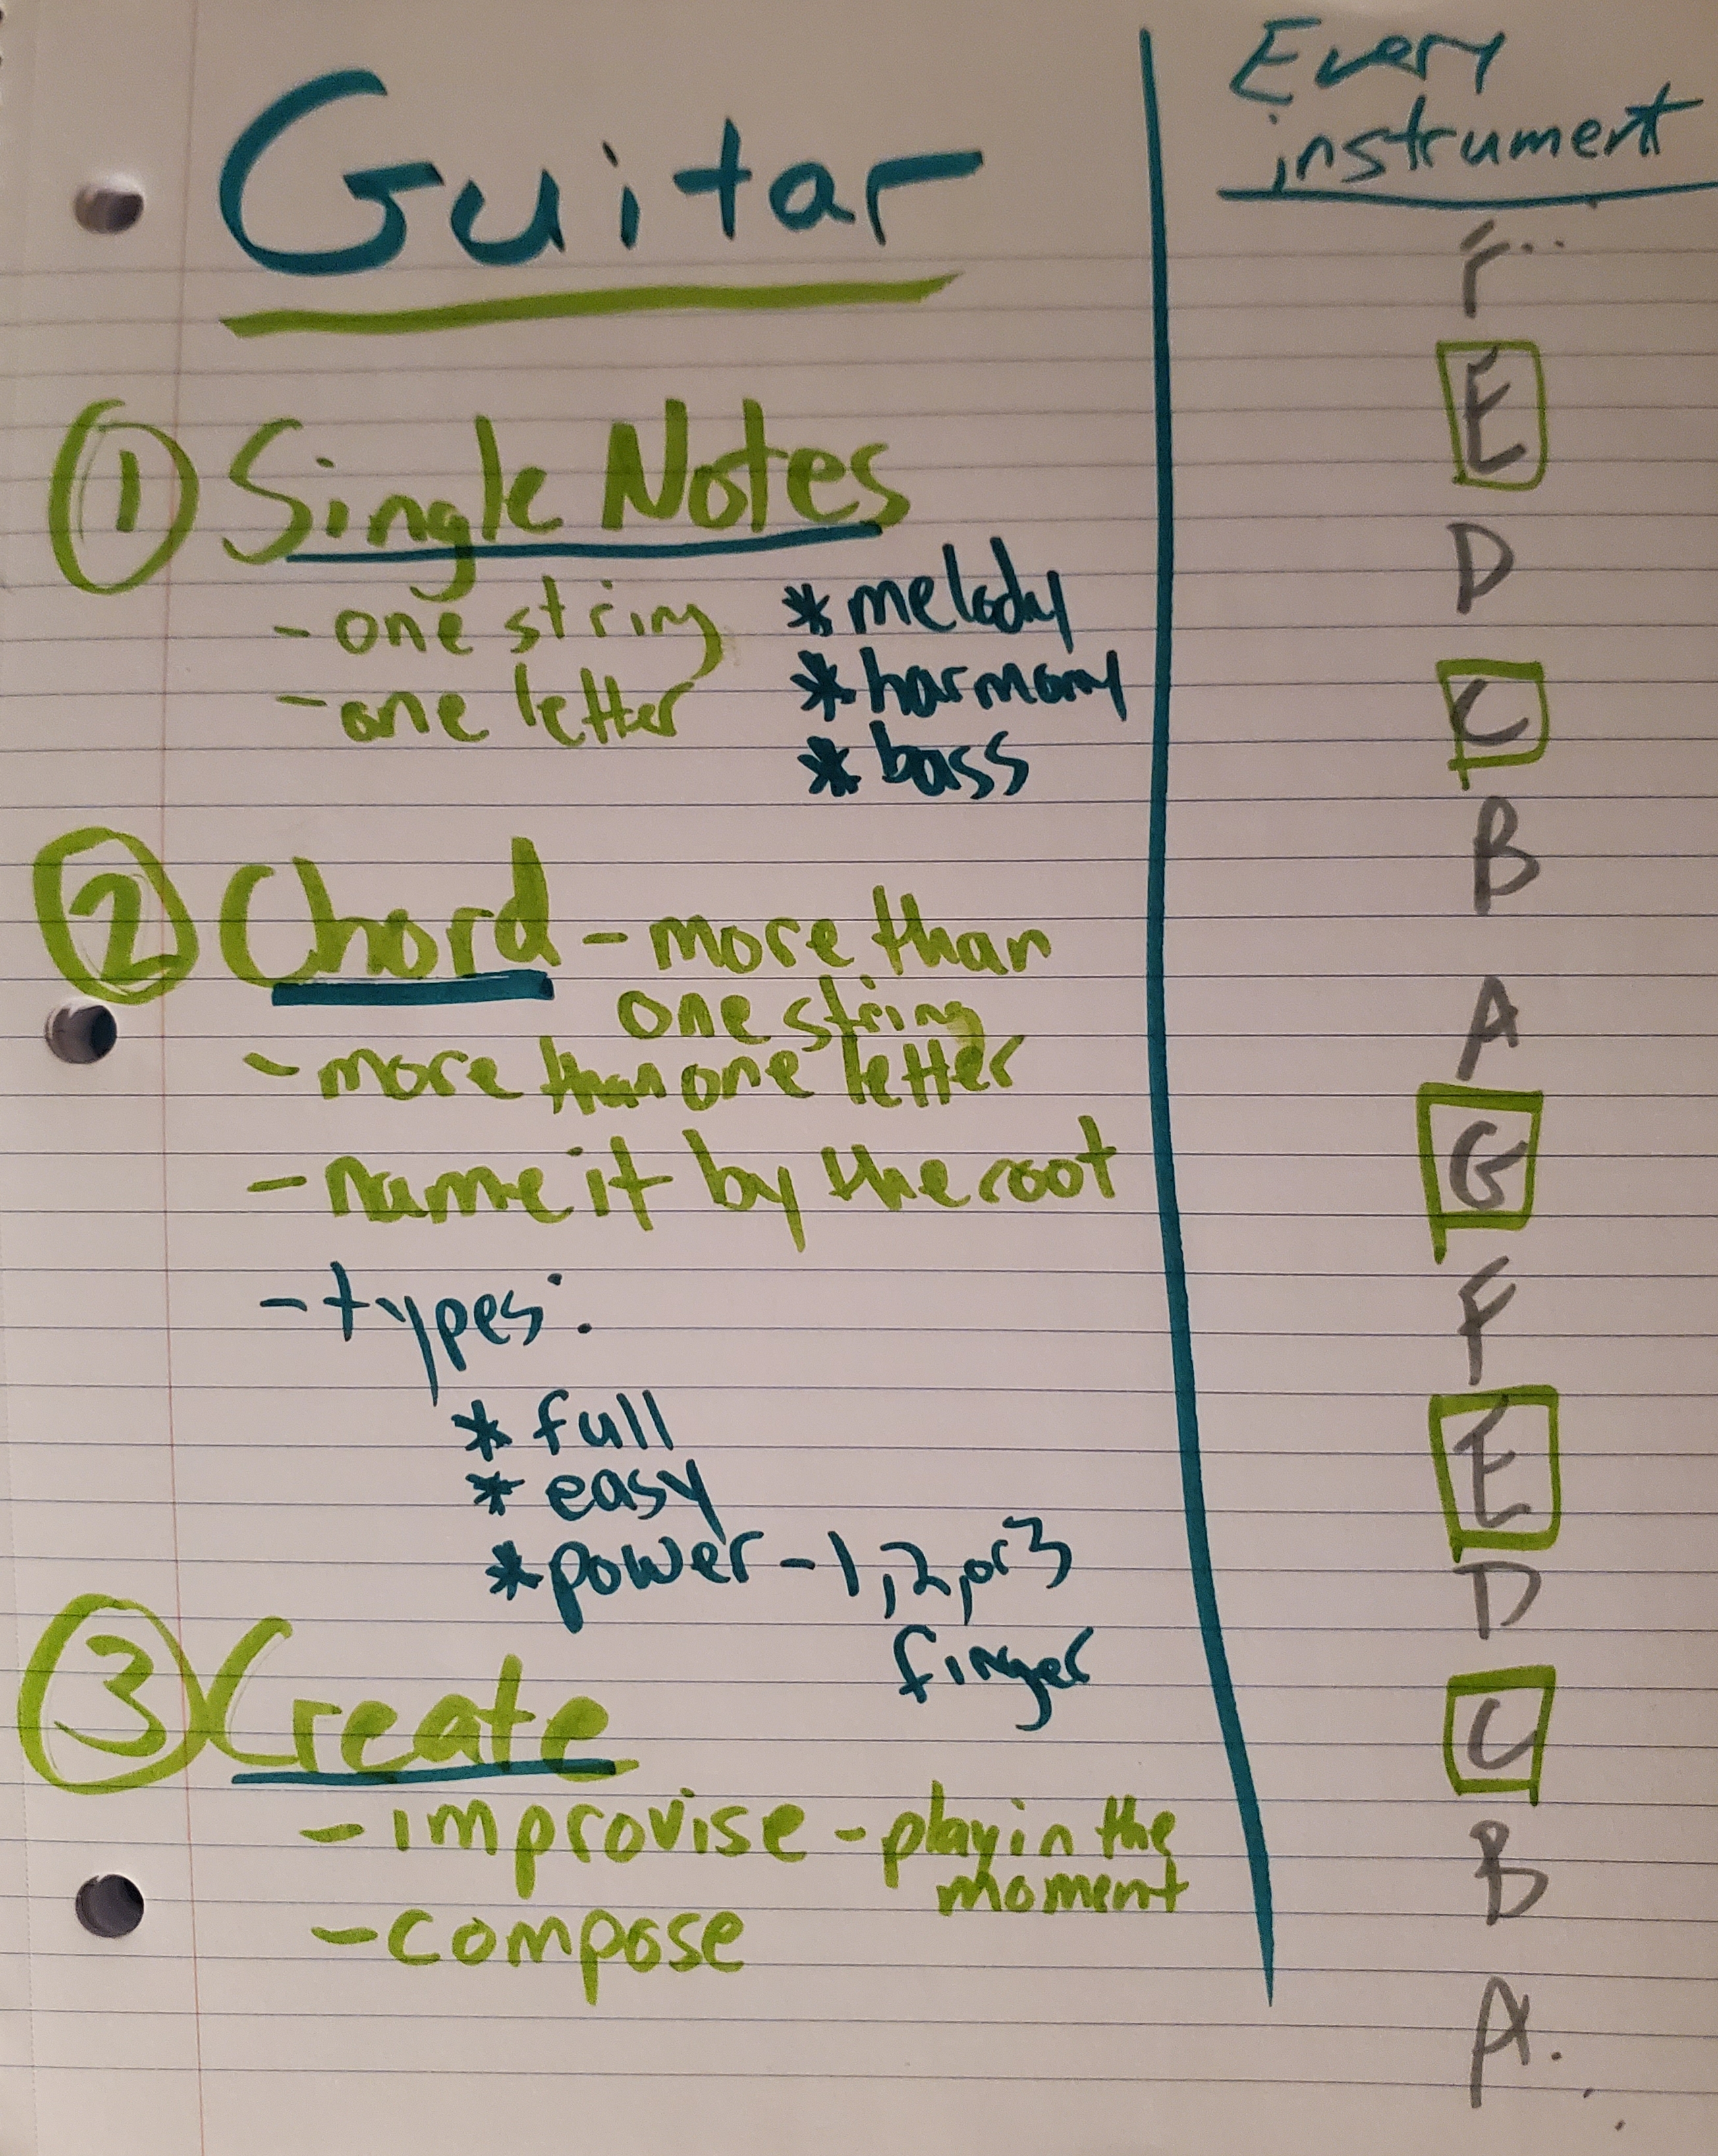 Guitar
① Single Notes
- one string
- one letter
* melody
* harmony
* bass
② Chord - more than
one string
- more than one letter
- name it by the root
- types:
* full
* easy
* power - 1, 2, or 3
finger
③ Create
- improvise - play in the
moment
- compose
Every
instrument
F
E
D
C
B
A
G
F
E
D
C
B
A